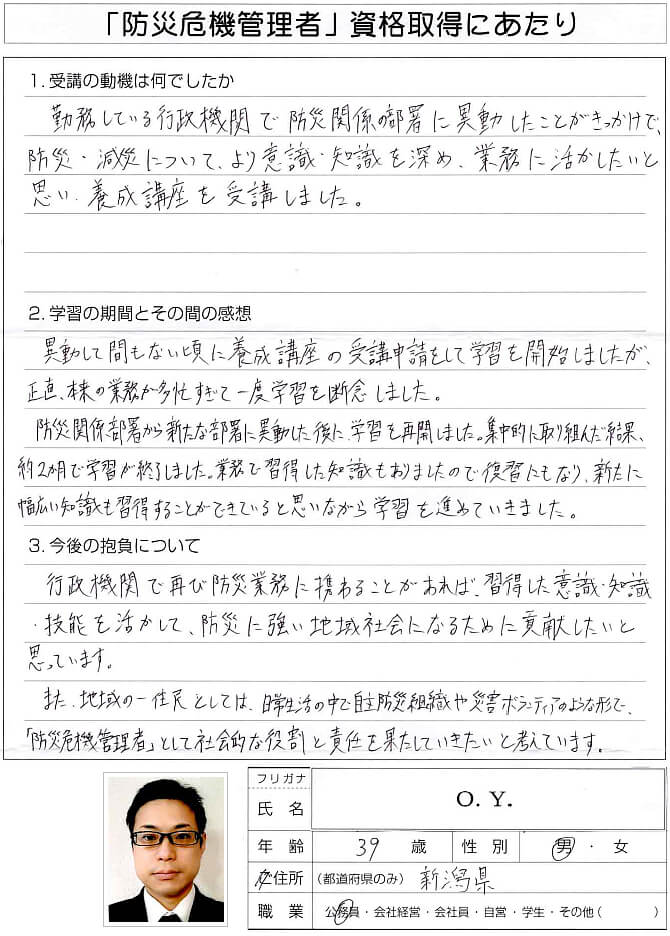 「防災危機管理者」資格取得にあたり
1.受講の動機は何でしたか
勤務している行政機関で防災関係の部署に異動したことがきっかけで、
防災・減災について、より意識・知識を深め、業務に活かしたいと
思い、養成講座を受講しました。
2.学習の期間とその間の感想
異動して間もない頃に養成講座の受講申請をして学習を開始しましたが、
正直、本株の業務が多忙すぎて一度学習を断念しました。
防災関係部署から新たな部署に異動した後に、学習を再開しました。集中的に取り組んだ結果、
約2か月で学習が終了しました。業務で習得した知識もありましたので復習にもなり、新たに
幅広い知識も習得することができていると思いながら学習を進めていきました。
3.今後の抱負について
行政機関で再び防災業務に携わることがあれば、習得した意識・知識
・技能を活かして、防災に強い地域社会になるために貢献したいと
思っています。
また、地域の一住民としては、日常生活の中で自主防災組織や災害ボランティアのような形で、
「防災危機管理者」として社会的な役割と責任を果たしていきたいと考えています。
フリガナ
氏名 O. Y.
年齢 39 歳 性別 男・女
住所 (都道府県のみ) 新潟県
職業 公務員・会社経営・会社員・自営・学生・その他( )